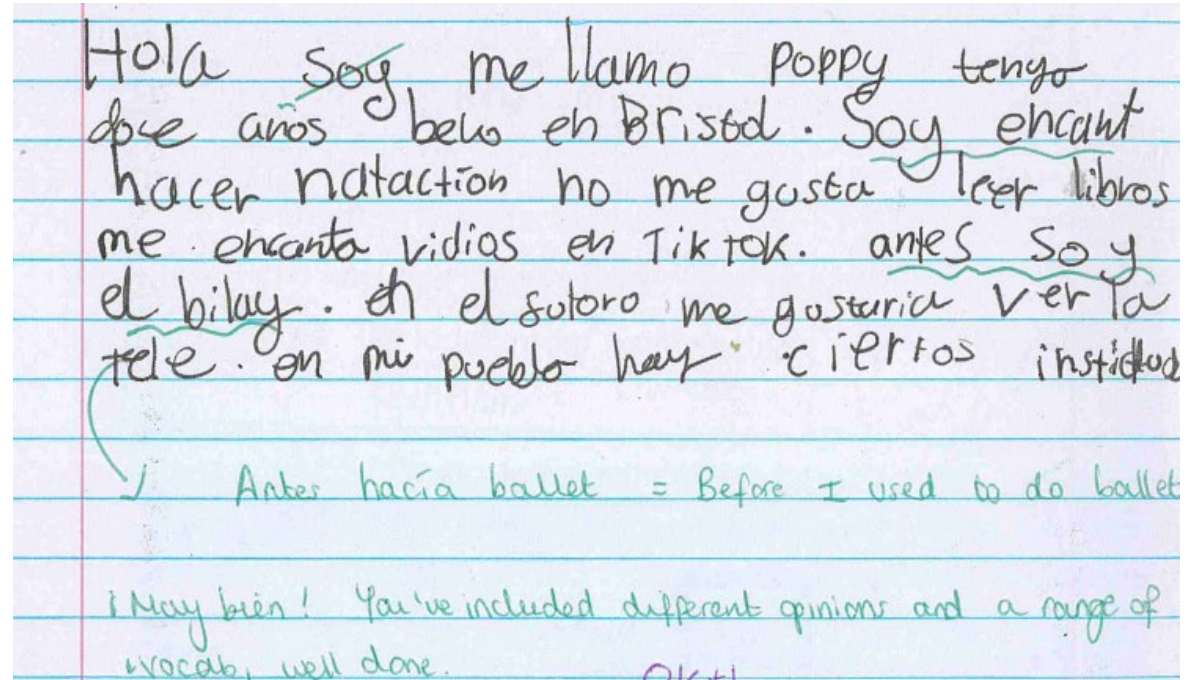 Hola Soy me llamo Poppy tengo
doce años belo en Bristol. Soy encant
hacer nataction no me gusta leer libros
me encanta vidios en Tik tok. antes Soy
el bilay. en el futoro me gusturia ver la
tele. en mi pueblo hay ciertos
Antes hacía ballet = Before I used to do ballet
¡Muy bien! You've included different opinions and a range of
vocab, well done.